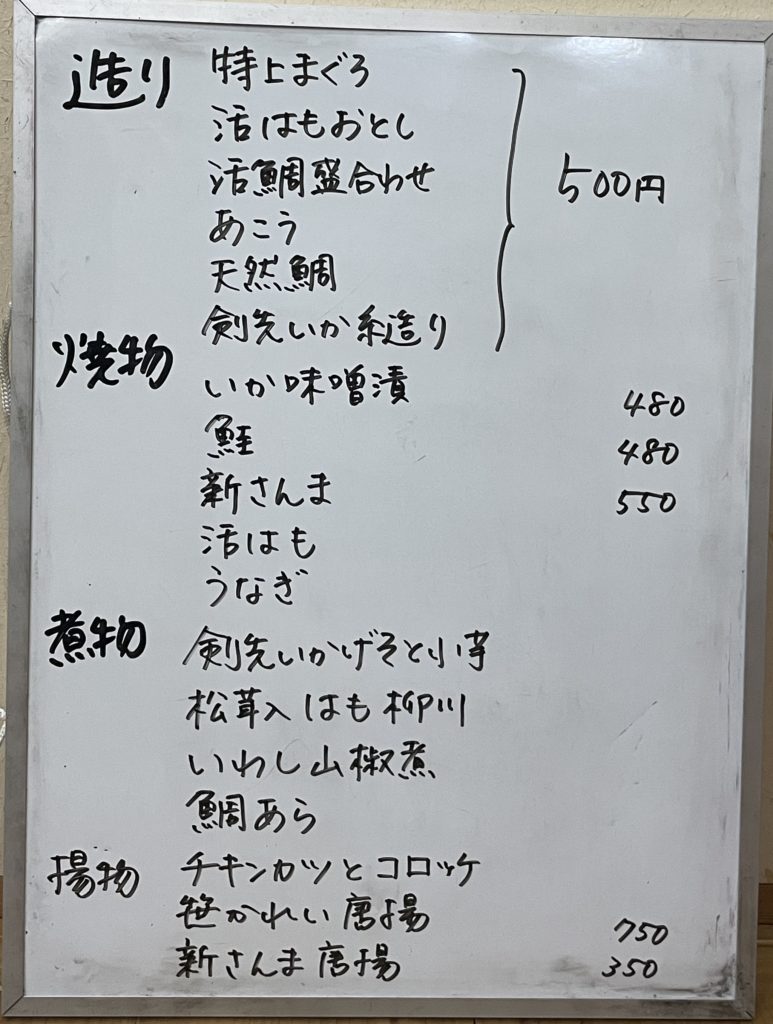 造り 特上まぐろ
活はもおとし
活鯛盛合わせ 500円
あこう
天然鯛
剣先いか糸造り
焼物 いか味噌漬 480
鮭 480
新さんま 550
活はも
うなぎ
煮物 剣先いかげそと小芋
松茸入はも柳川
いわし山椒煮
鯛あら
揚物 チキンカツとコロッケ
笹かれい唐揚 750
新さんま唐揚 350